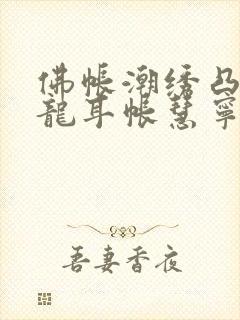 佛帐潮绣凸
龍耳帐慧寧
吾妻香夜